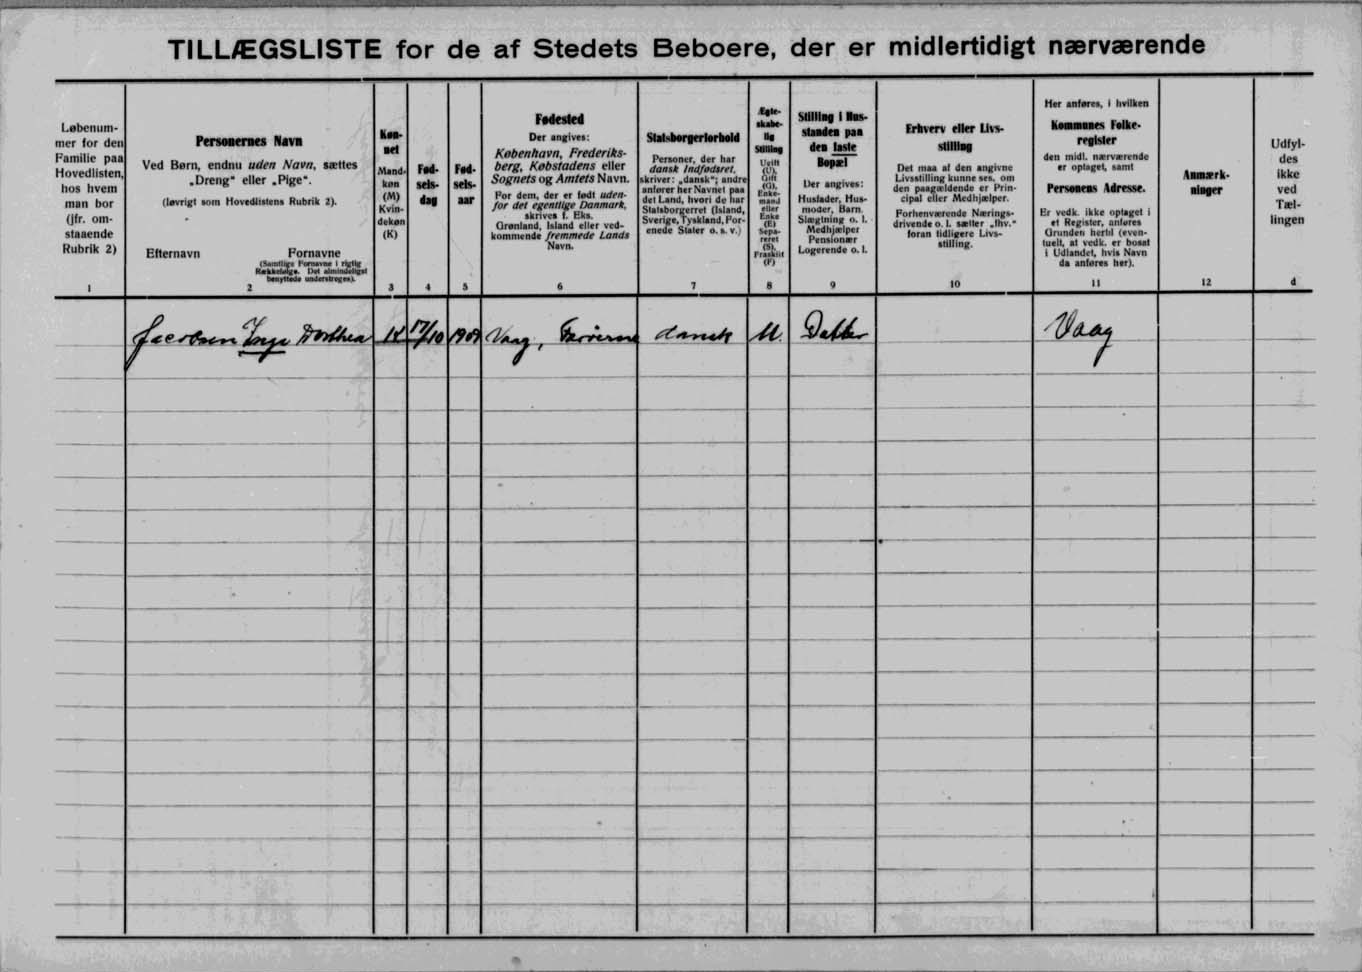 TILLÆGSLISTE for de af Stedets Beboere, der er midlertidigt nærværende
Løbenum-
mer for den
Familie paa
Hovedlisten,
hos hvem
man bor
(jfr. om-
staaende
Rubrik 2)
1
Personernes Navn
Ved Børn, endnu uden Navn, sættes
„Dreng“ eller „Pige“.
(Iøvrigt som Hovedlistens Rubrik 2).
Efternavn Fornavne
(Samtlige Fornavne i rigtig
Rækkefølge. Det almindeligst
benyttede understreges).
2
Køn-
net
Mand-
køn
(M)
Kvin-
dekøn
(K)
3
Fød-
sels-
dag
4
Fød-
sels-
aar
5
Fødested
Der angives:
København, Frederiks-
berg, Købstadens eller
Sognets og Amtets Navn.
For dem, der er født uden-
for det egentlige Danmark,
skrives f. Eks.
Grønland, Island eller ved-
kommende fremmede Lands
Navn.
6
Statsborgerforhold
Personer, der har
dansk Indfødsret,
skriver: „dansk“; andre
anfører her Navnet paa
det Land, hvori de har
Statsborgerret (Island,
Sverige, Tyskland, For-
enede Stater o. s. v.)
7
Ægte-
skabe-
lig
Stilling
Ugift
(U),
Gift
(G),
Enke-
mand
eller
Enke
(E)
Sepa-
reret
(S),
Fraskilt
(F)
8
Stilling i Hus-
standen paa
den faste
Bopæl
Der angives:
Husfader, Hus-
moder, Barn,
Slægtning o. l.
Medhjælper
Pensionær
Logerende o. l.
9
Erhverv eller Livs-
stilling
Det maa af den angivne
Livsstilling kunne ses, om
den paagældende er Prin-
cipal eller Medhjælper.
Forhenværende Nærings-
drivende o. l. sætter „fhv.“
foran tidligere Livs-
stilling.
10
Her anføres, i hvilken
Kommunes Folke-
register
den midl. nærværende
er optaget, samt
Personens Adresse.
Er vedk. ikke optaget i
et Register, anføres
Grunden hertil (even-
tuelt, at vedk. er bosat
i Udlandet, hvis Navn
da anføres her).
11
Anmærk-
ninger
12
Udfyl-
des
ikke
ved
Tæl-
lingen
d
Jacobsen Inga Dorthea K 17/10 1909 Vaag, Færøerne dansk U. Datter Vaag